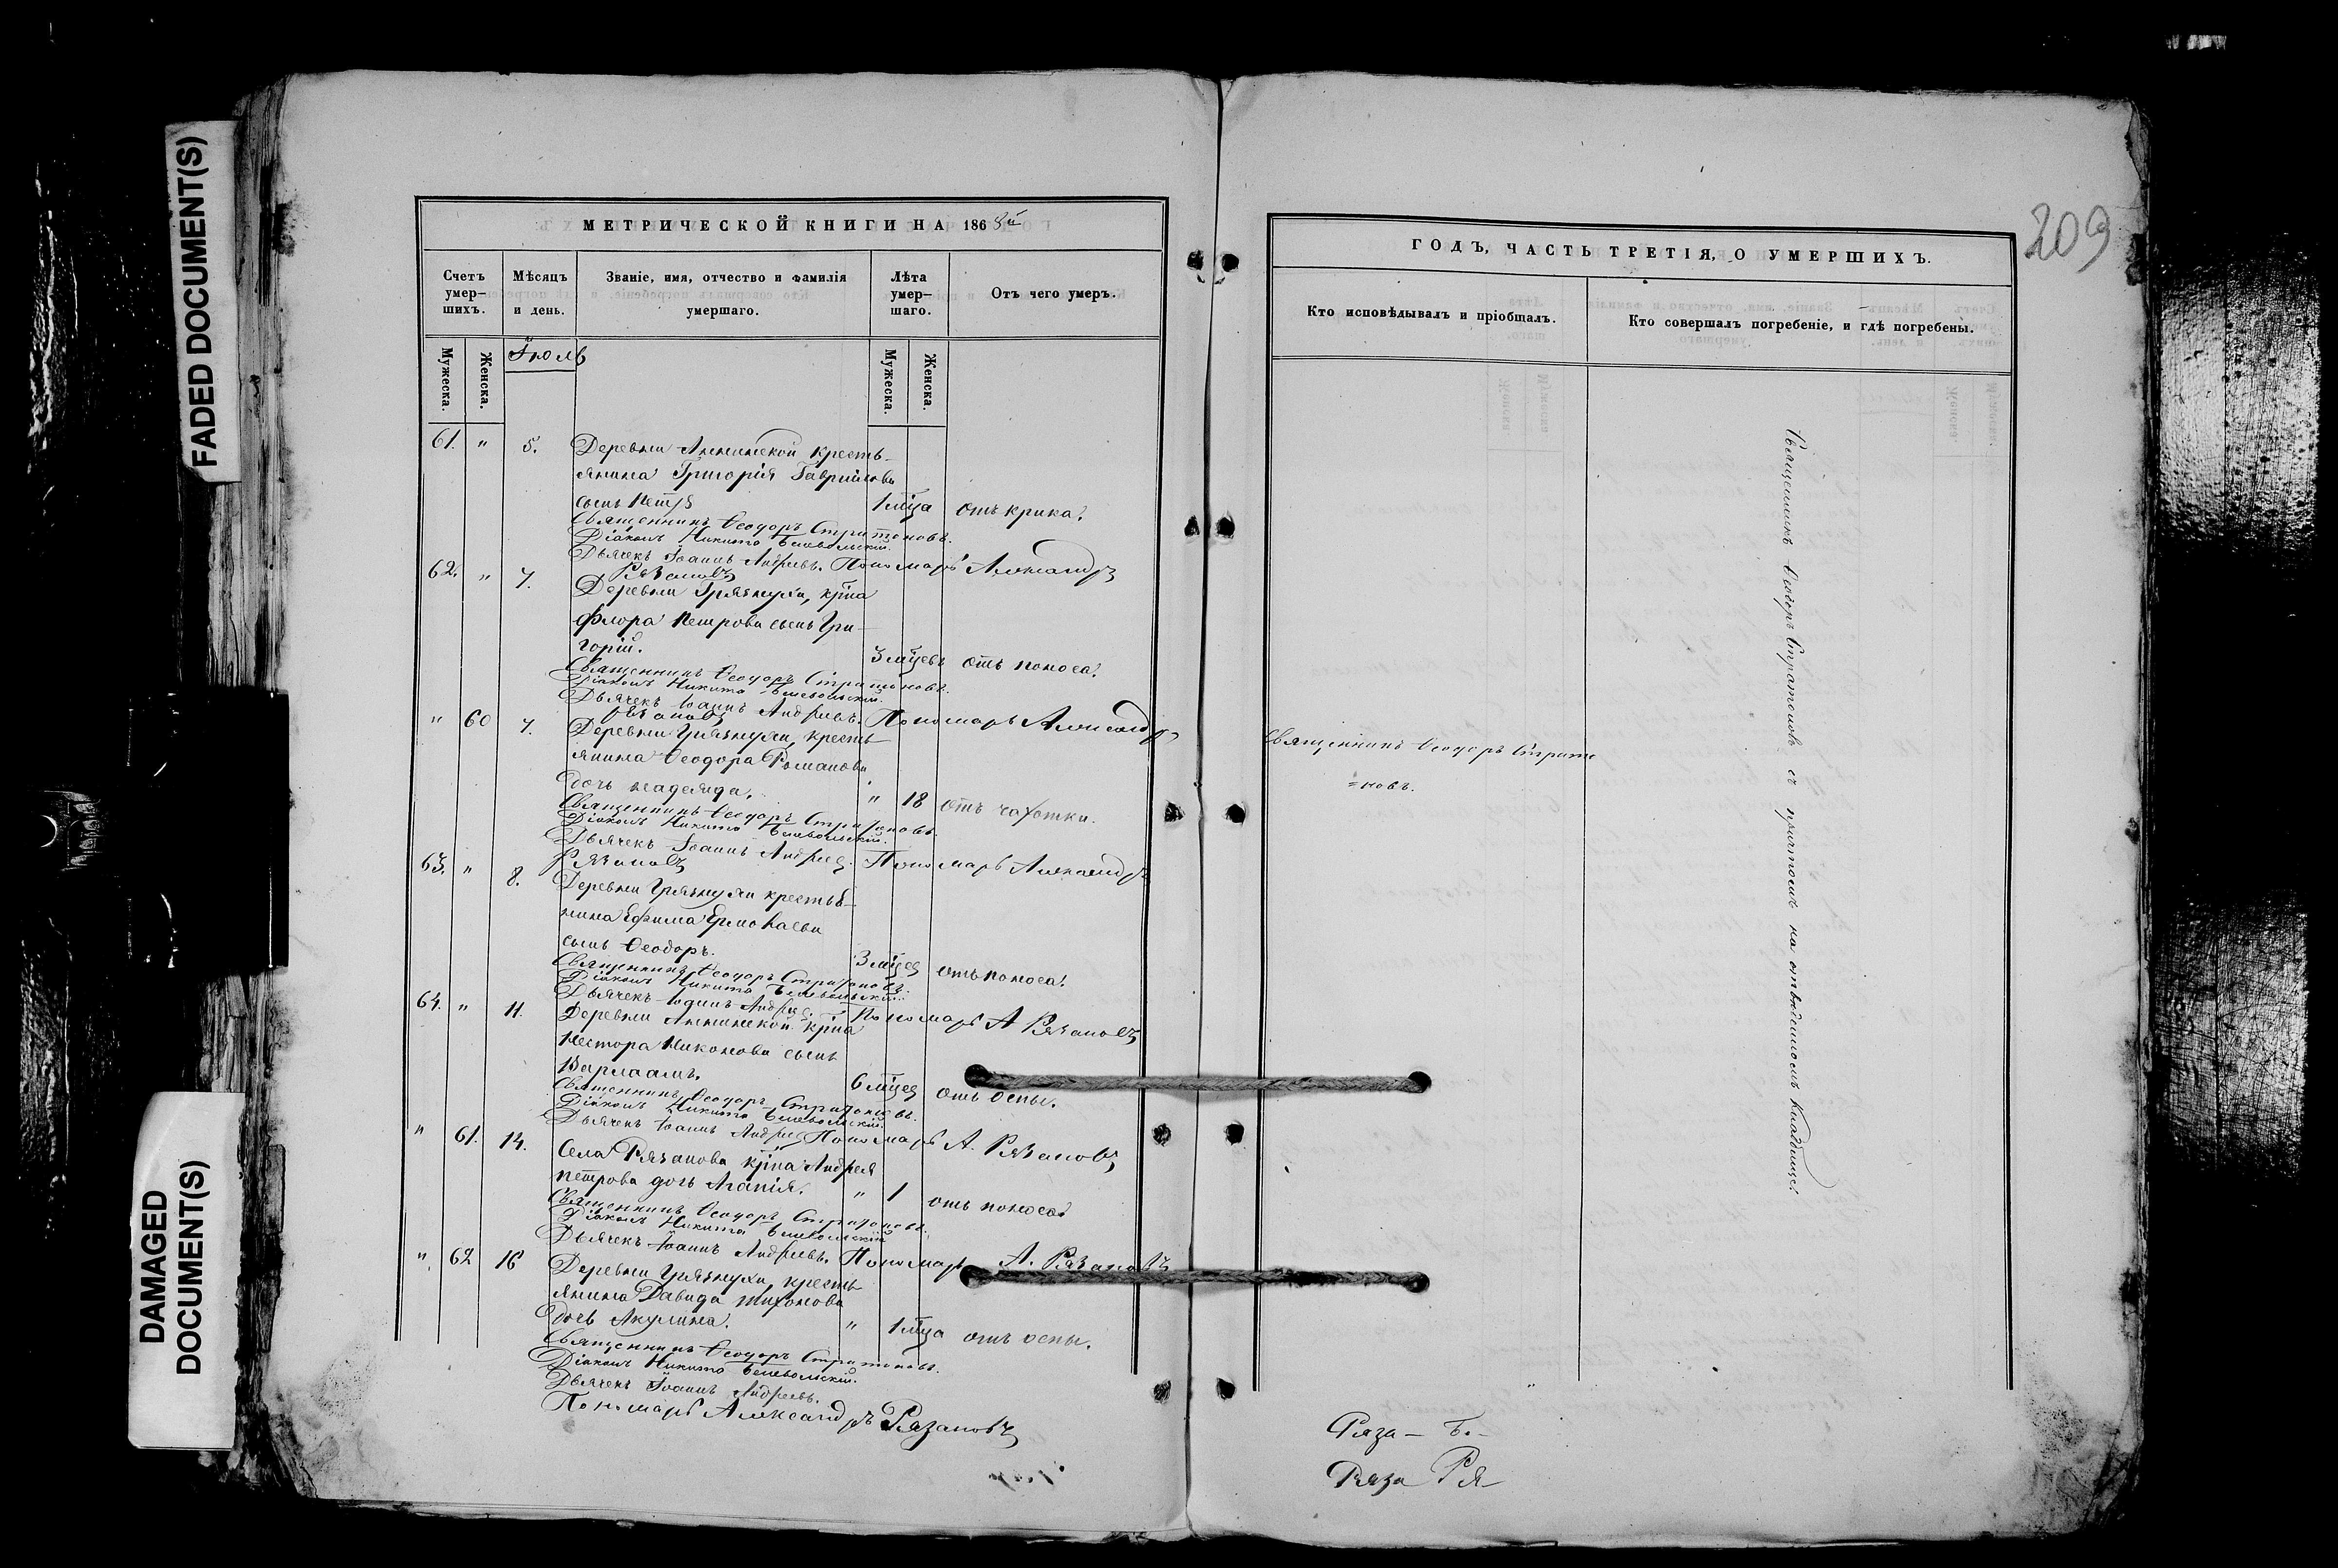 FADED DOCUMENT(S)
DAMAGED
DOCUMENT(S)
МЕТРИЧЕСКОЙ КНИГИ НА 1868й
Счетъ умер-шихъ.
Мѣсяцъ и день.
Званіе, имя, отчество и фамилія умершаго.
Лѣта умер-шаго.
Отъ чего умеръ.
Мужеска.
Женска.
Іюль
Мужеска.
Женска.
61. " 5. Деревни Аннинской кресть-
янина Григорія Гаврилова
сынъ Петръ 1 мца отъ крика.
Священникъ Ѳеодоръ Стратоновъ.
Діаконъ Никита
Дьячекъ Іоаннъ Андреевъ. Пономарь Александръ
Рязановъ
62. " 7. Деревни Грязнухи, крна
Флора Петрова сынъ Гри-
горій. 3 мцевъ отъ поноса.
Священникъ Ѳеодоръ Стратоновъ.
Діаконъ Никита
Дьячекъ Іоаннъ Андреевъ. Пономарь Александръ
Рязановъ
" 60 7. Деревни Грязнухи, кресть-
янина Ѳеодора Романова
дочь Надежда. " 18 отъ чахотки.
Священникъ Ѳеодоръ Стратоновъ.
Діаконъ Никита
Дьячекъ Іоаннъ Андреев. Пономарь Александръ
Рязановъ
63. " 8. Деревни Грязнухи крестья-
нина Ефима Ермолаева
сынъ Ѳеодоръ. 3 мцев отъ поноса.
Священникъ Ѳеодоръ Стратоновъ.
Діаконъ Никита
Дьячекъ Іоаннъ Андреев. Пономарь А Рязановъ
64. " 11. Деревни Аннинской крна
Нестора Никонова сынъ
Варлаамъ. 6 мцев отъ оспы.
Священникъ Ѳеодоръ Стратоновъ.
Діаконъ Никита
Дьячекъ Іоаннъ Андреев Пономарь А. Рязановъ
" 61. 14. Села Рязанова крна Андрея
Петрова дочь Агапія. " 1 отъ поноса.
Священникъ Ѳеодоръ Стратоновъ.
Діаконъ Никита
Дьячекъ Іоаннъ Андреевъ. Пономарь А. Рязановъ
" 62 16 Деревни Грязнухи, кресть-
янина Давида Тихонова
дочь Акулина. " 1 мца отъ оспы.
Священникъ Ѳеодоръ Стратоновъ.
Діаконъ Никита
Дьячекъ Іоаннъ Андреевъ.
Пономарь Александръ Рязановъ
209
ГОДЪ, ЧАСТЬ ТРЕТІЯ, О УМЕРШИХЪ.
Кто исповѣдывалъ и пріобщалъ.
Кто совершалъ погребеніе, и гдѣ погребены.
Священникъ Ѳеодоръ Страто
=новъ.
Священникъ Ѳеодоръ Стратоновъ съ причтомъ на отведенномъ кладбище.
Ряза – Б. –
Ряза Ря –